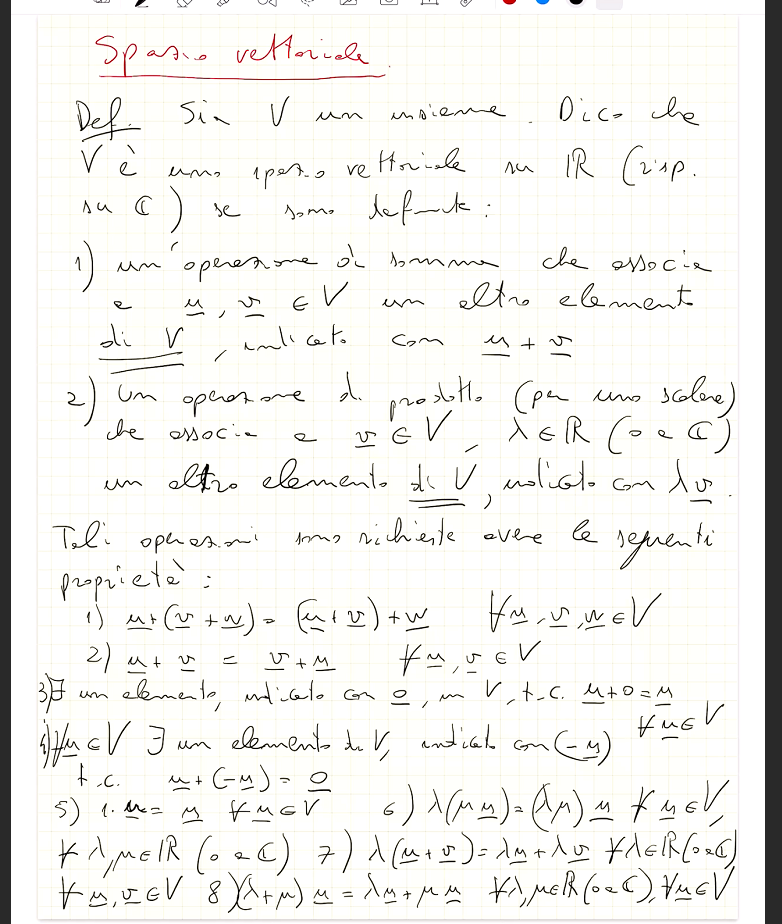 Spazio vettoriale
Def. Sia V un insieme. Dico che
V è uno spazio vettoriale su ℝ (risp.
su ℂ) se sono definite:
1) un'operazione di somma che associa
a u, v ∈ V un altro elemento
di V, indicato con u + v
2) Un operazione di prodotto (per uno scalare)
che associa a v ∈ V, λ ∈ ℝ (o a ℂ)
un altro elemento di V, indicato con λv.
Tali operazioni sono richieste avere le seguenti
proprietà:
1) u+(v+w) = (u+v)+w ∀u, v, w ∈ V
2) u + v = v + u ∀u, v ∈ V
3) ∃ un elemento, indicato con 0, in V, t.c. u+0=u
∀u ∈ V
4) ∀u ∈ V ∃ un elemento di V, indicato con (-u)
t.c. u+(-u) = 0
5) 1·u = u ∀u ∈ V 6) λ(μu)=(λμ)u ∀u ∈ V,
∀λ,μ ∈ ℝ (o a ℂ) 7) λ(u+v)=λu+λv ∀λ∈ℝ(o a ℂ)
∀u, v ∈ V 8) (λ+μ)u = λu+μu ∀λ,μ∈ℝ(o a ℂ), ∀u∈V